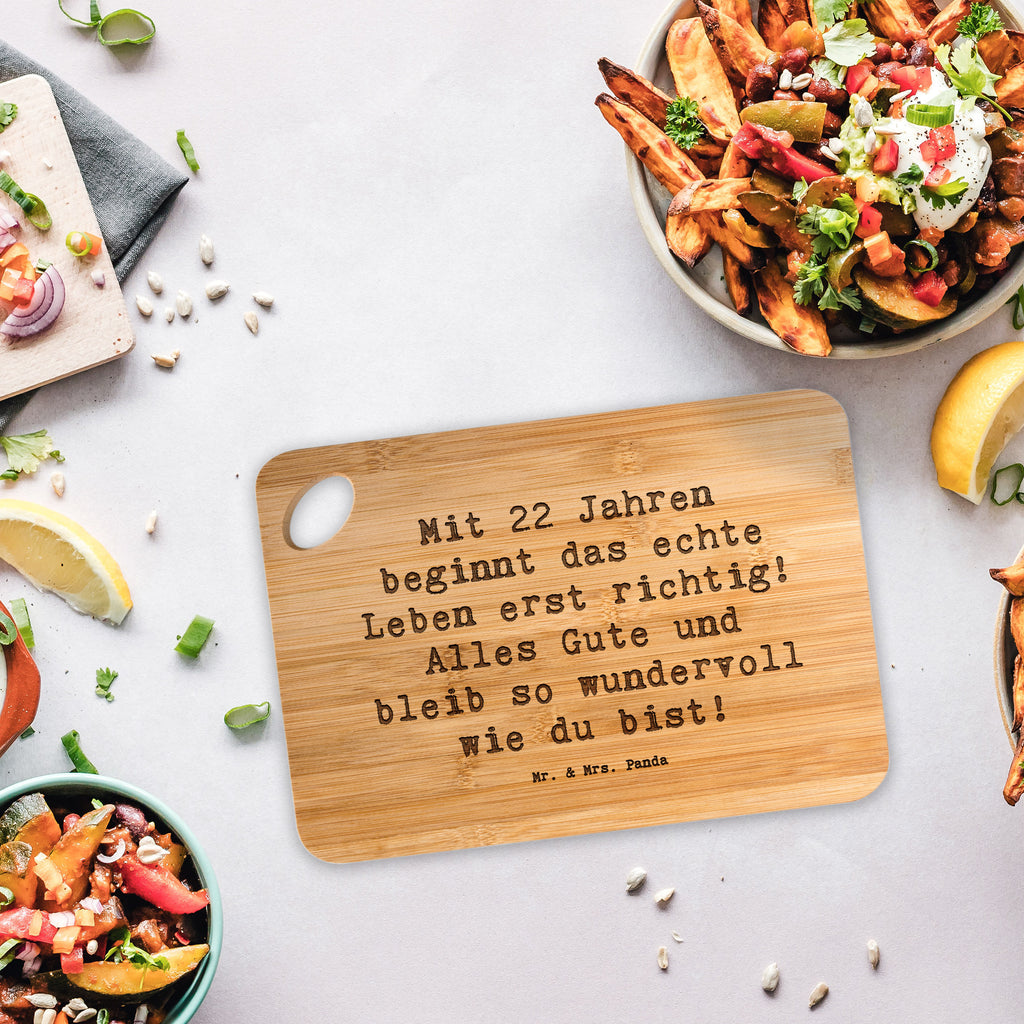 Mit 22 Jahren
beginnt das echte
Leben erst richtig!
Alles Gute und
bleib so wundervoll
wie du bist!
Mr. & Mrs. Panda